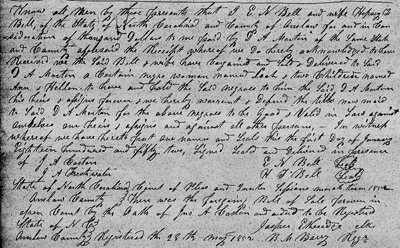 Know all Men by these presents that I E N Bell and wife Hepsey B
Bell, of the State of North Carolina and County of Onslow for and in Con
sideration of thousand Dollars to me paid by D A Morton of the Same State
and County aforesaid the Receipt whereof we do hereby acknowledged to have
Received we the Said Bill & wife have bargained and Sold & Delivered to Said
D A Morton a Certain negro woman named Leah & two Children named
Ann & Hellen to have and hold the Said negroes to him the Said D A Morton
his heirs & assigns forever & we hereby warrent & Defend the title now made
to Said D A Morton for the above negroes to be Good & Valid in Law against
ourselves our heirs & assigns and against all other persons, In witness
whereof we have set our names and Seals this the first day of January
Eighteen hundred and fifty two, Signed Seald and Delivered in presence
of J A Caston E N Bell Seal
J A H B Bell Seal
State of North Carolina Court of Pleas and Quarter Sessions march term 1852
Onslow County There was the foregoing Bill of Sale proven in
open Court by the Oath of Jas A Caston and orded to be Registered
State of N C Jasper Etheridge clk
Onslow County Registered the 28th may 1852 B M Barry Regr